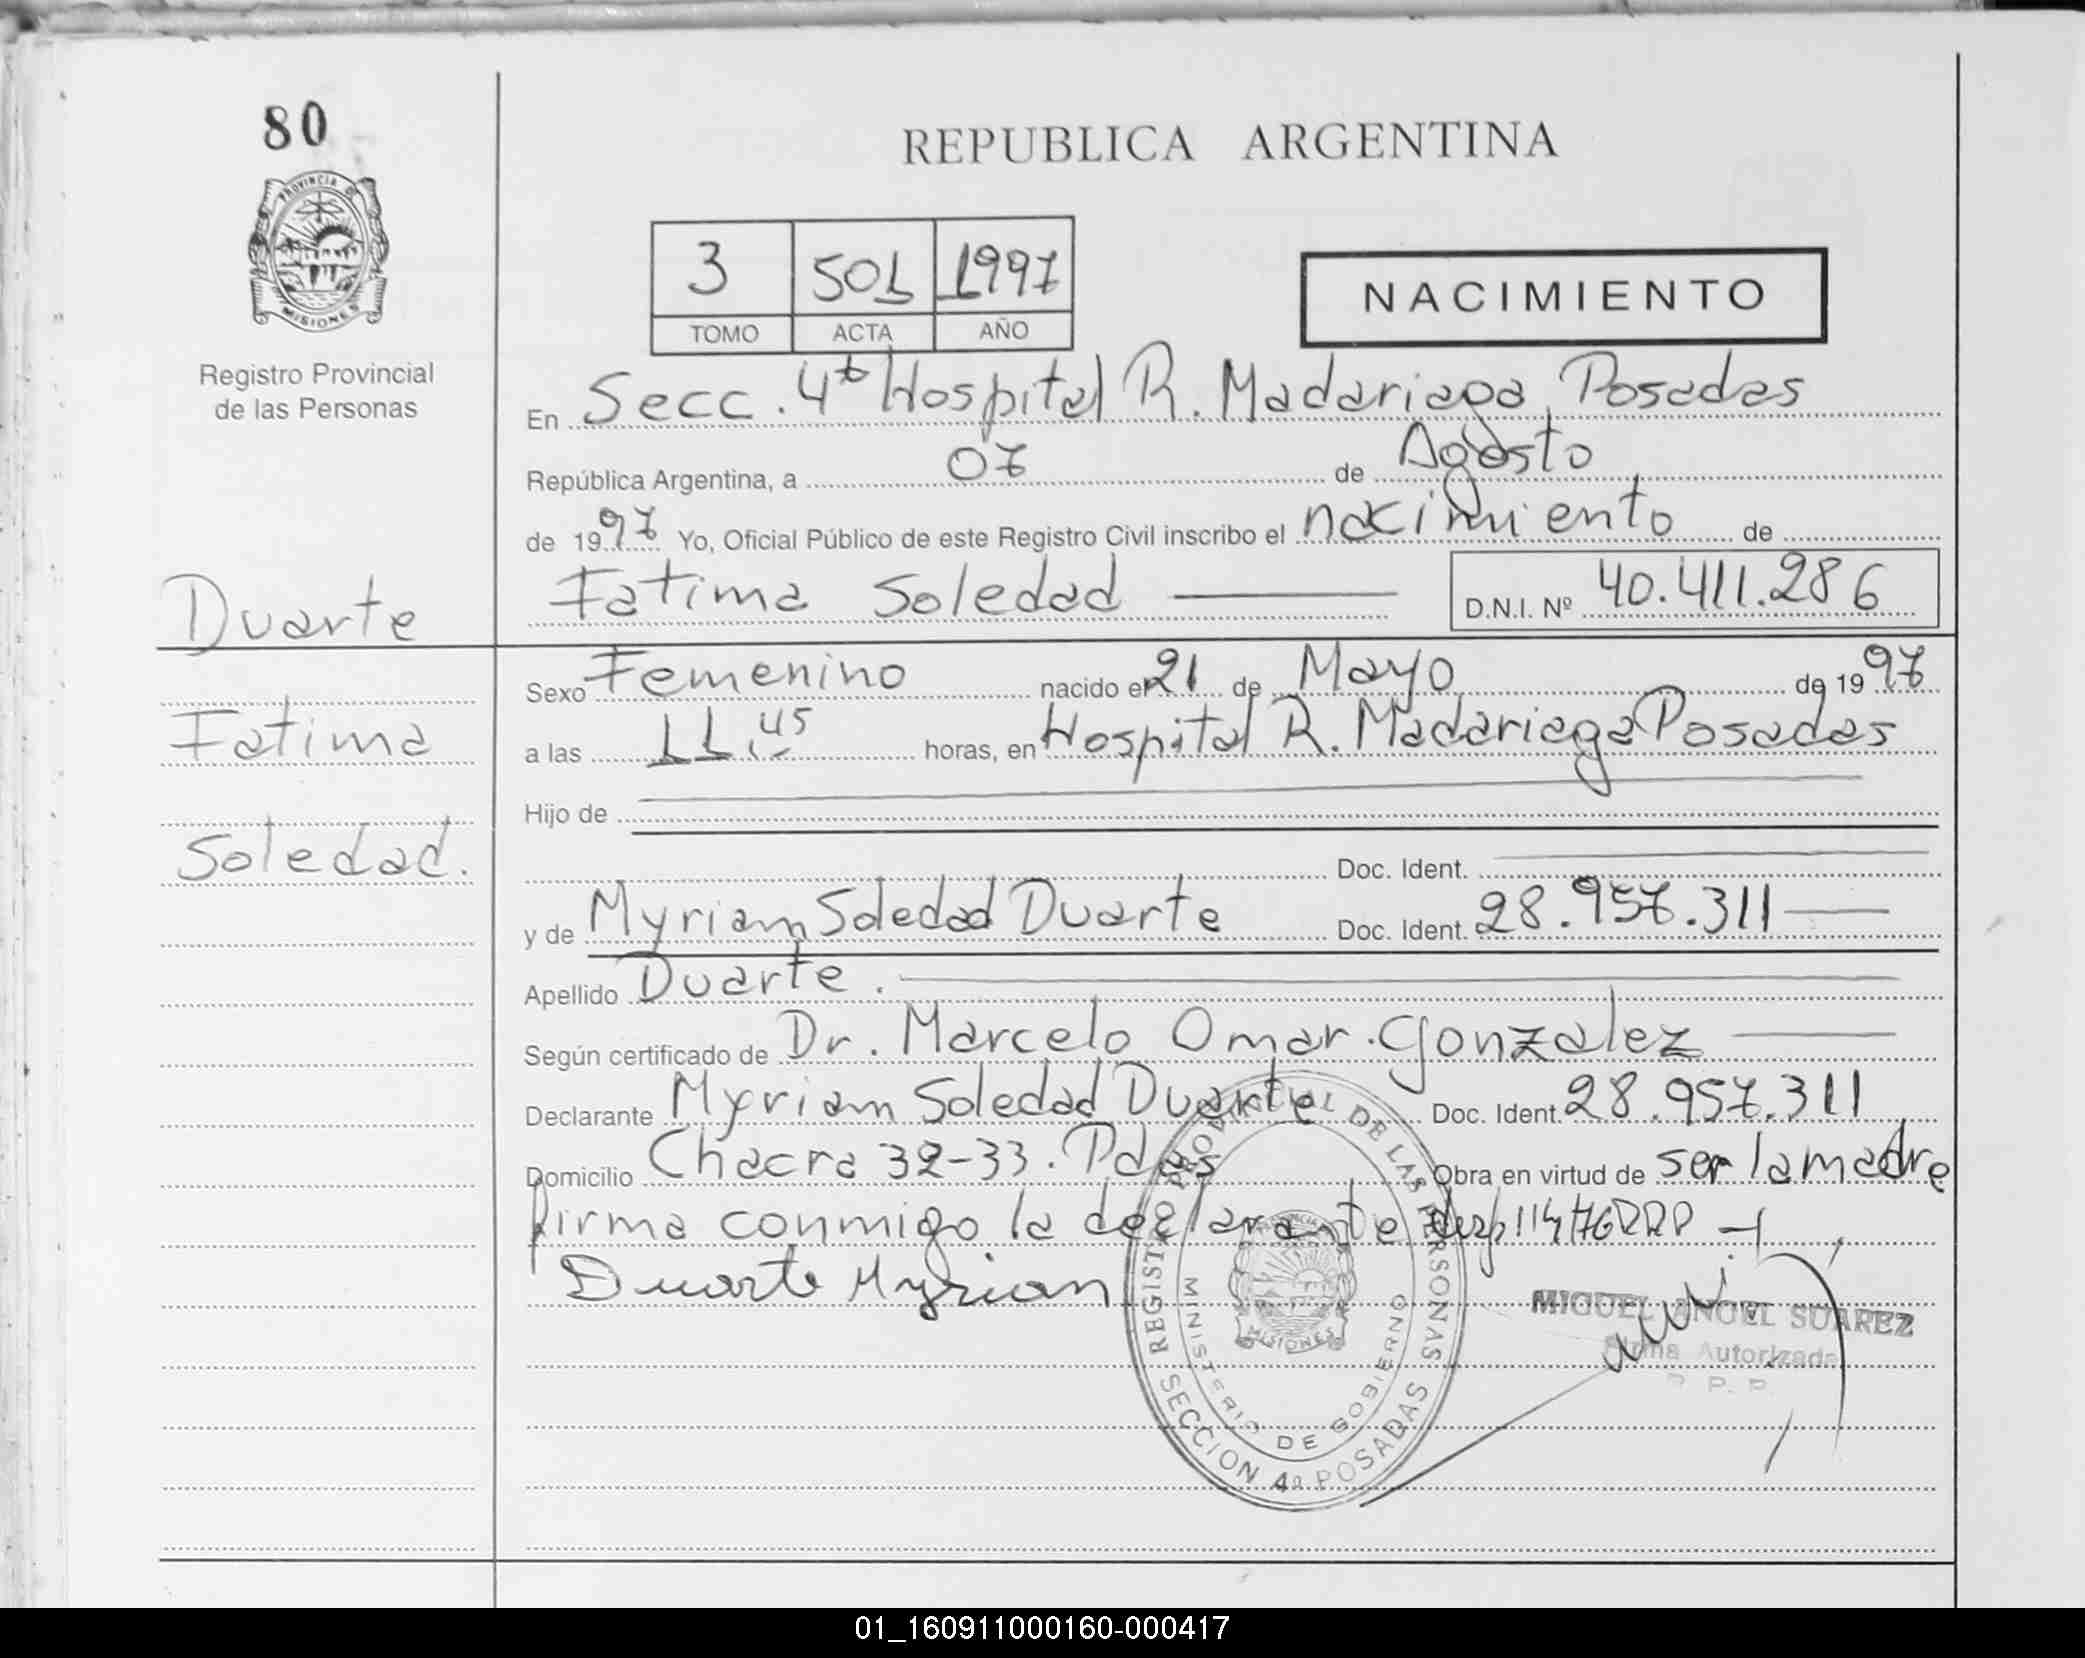 80
PROVINCIA DE
MISIONES
Registro Provincial
de las Personas
Duarte
Fatima
Soledad.
REPUBLICA ARGENTINA
3 501 1997
TOMO ACTA AÑO
NACIMIENTO
En Secc. 4ta Hospital R. Madariaga Posadas
República Argentina, a 07 de Agosto
de 1997 Yo, Oficial Público de este Registro Civil inscribo el nacimiento de
Fatima Soledad D.N.I. Nº 40.411.286
Sexo Femenino nacido el 21 de Mayo de 1997
a las 11.45 horas, en Hospital R. Madariaga Posadas
Hijo de
Doc. Ident.
y de Myriam Soledad Duarte Doc. Ident. 28.957.311
Apellido Duarte.
Según certificado de Dr. Marcelo Omar Gonzalez
Declarante Myriam Soledad Duarte Doc. Ident. 28.957.311
Domicilio Chacra 32-33. Pdas Obra en virtud de ser la madre
firma conmigo la declarante
Duarte Myrian
REGISTRO PROVINCIAL DE LAS PERSONAS
MINISTERIO DE GOBIERNO
MISIONES
SECCION 4ª POSADAS
MIGUEL ANGEL SUAREZ
Firma Autorizada
R. P. P.
01_160911000160-000417